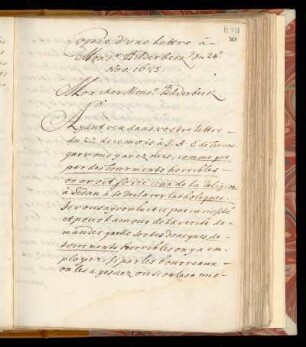 Copie d'une lettre à
Mons.r Bilderbeck du 24.e
Nov. 1685
Mon cher Mons.r Bilderbeck
Ayant veu dans vostre lettre
du 22 de ce mois à S. A. E. de
que vous y avez mis, comme que
par des tourments horribles
on avoit forcé ceux de la Religion
à Sedan à se declarer Catholiques
Je vous ay voulu et par curiosité
et pour l'amour de la verité de-
mander quelle sorte de
tourments horribles on y a em-
ployez. Si par les bourreaux
on les a gesnez ou si on les a mis